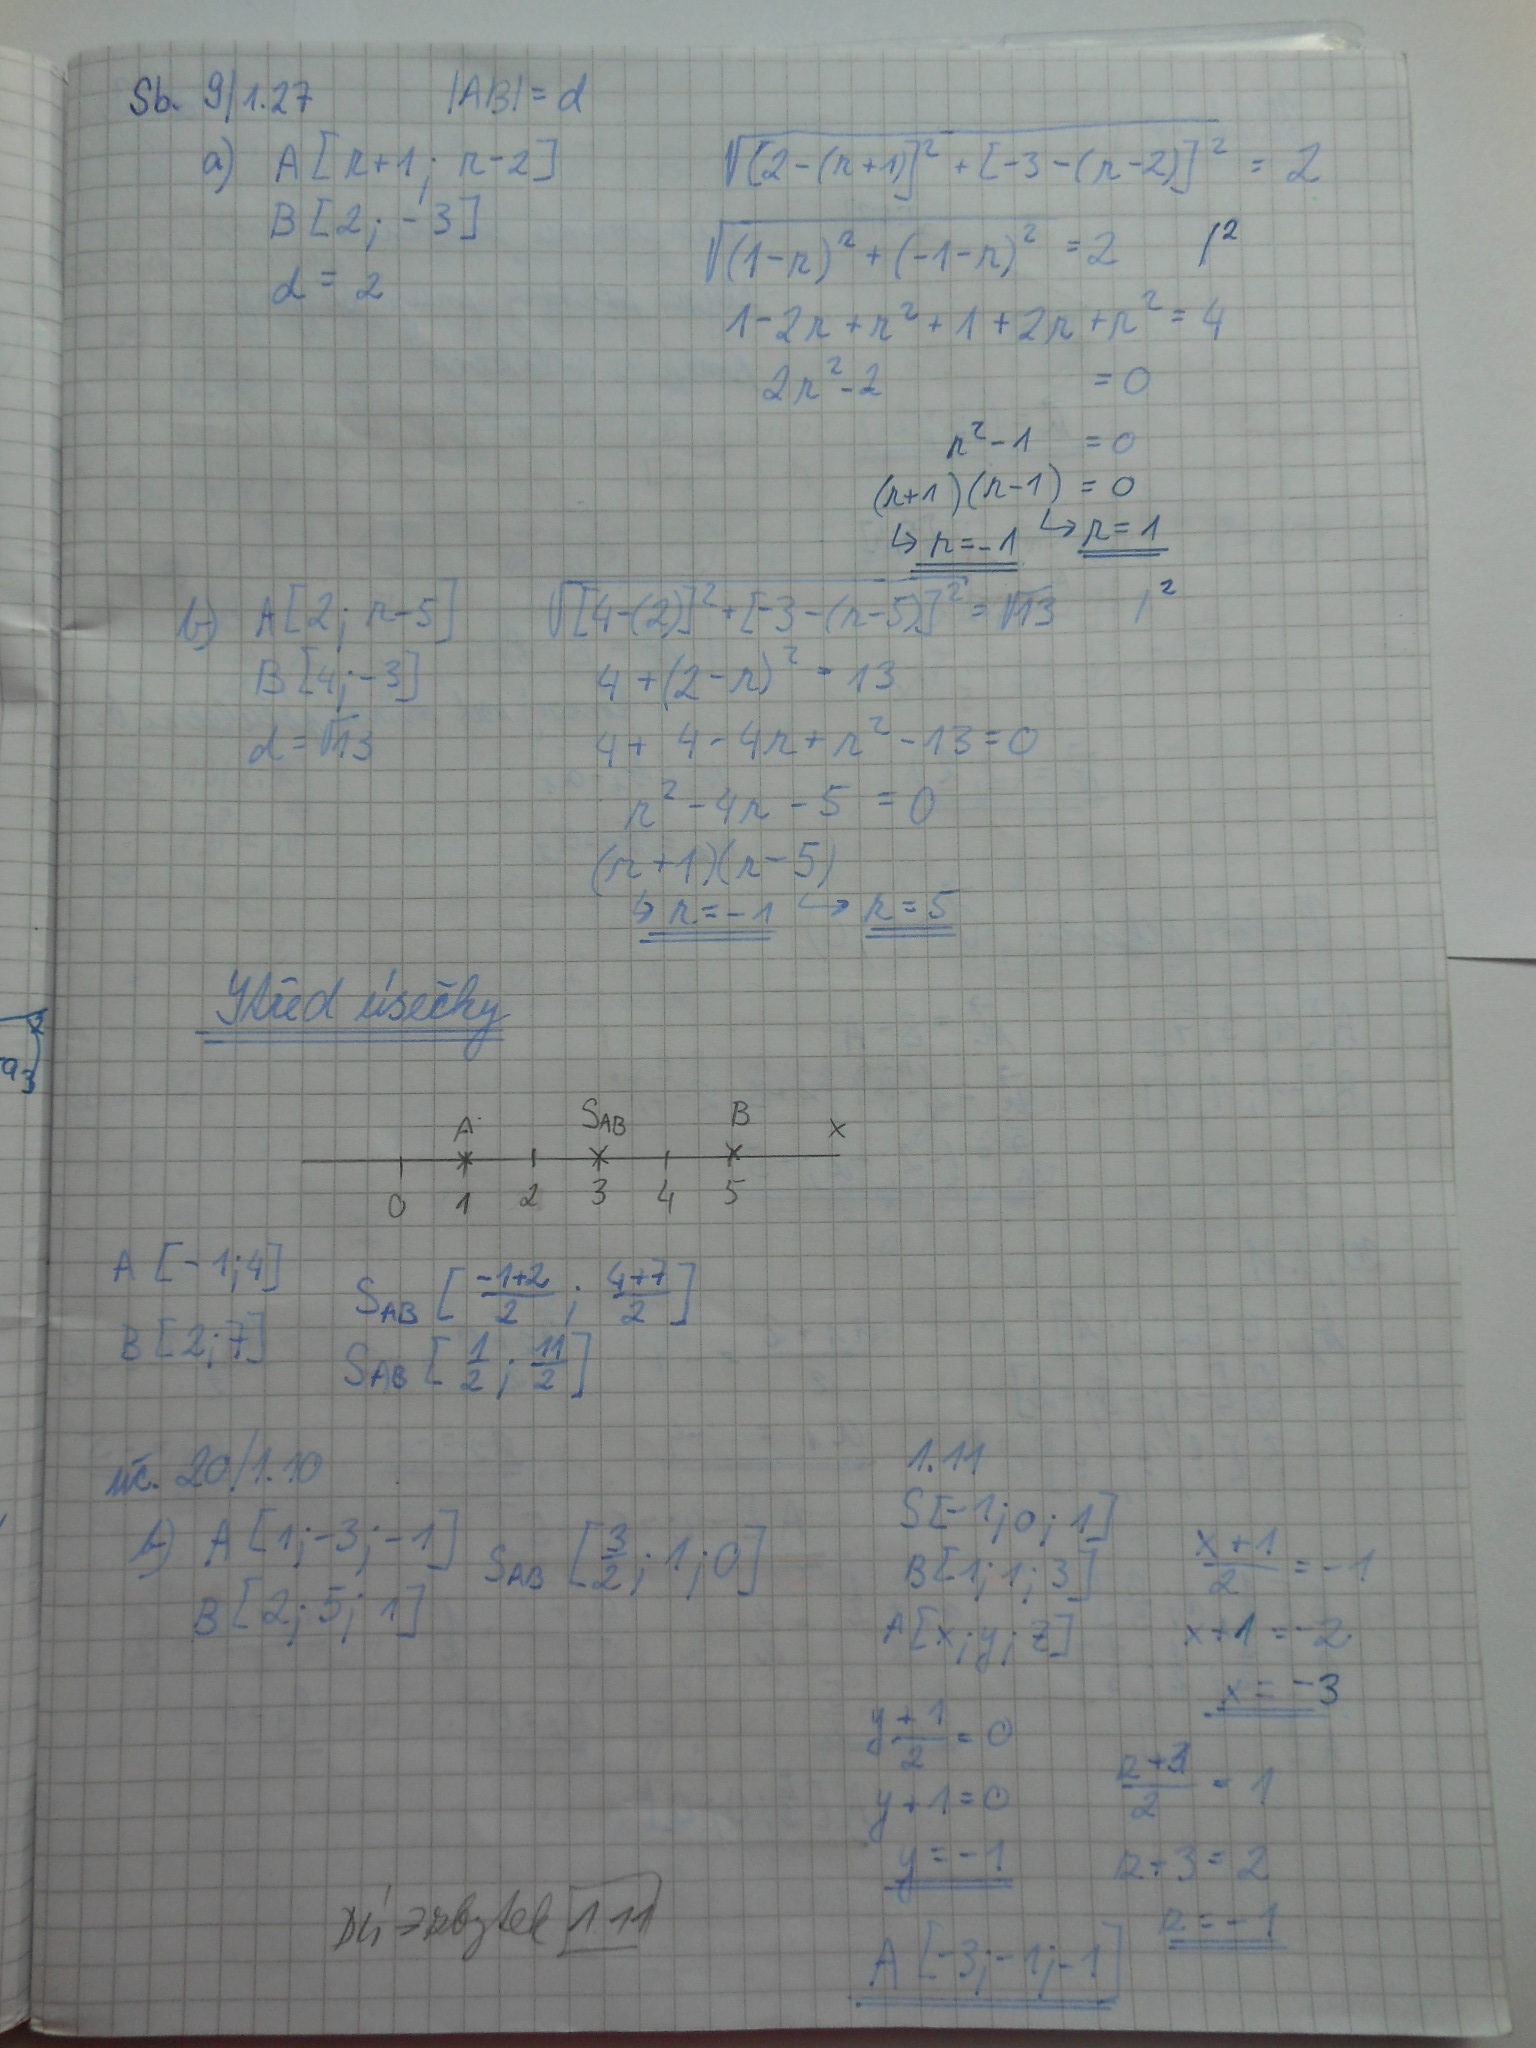 Sb. 9/1.27 |AB| = d
a) A[r+1; r-2]
B[2; -3]
d = 2
√([2-(r+1)]² + [-3-(r-2)]²) = 2
√((1-r)² + (-1-r)²) = 2 /²
1-2r+r²+1+2r+r² = 4
2r²-2 = 0
r²-1 = 0
(r+1)(r-1) = 0
↳ r=-1 ↳ r=1
b) A[2; r-5]
B[4; -3]
d = √13
√([4-(2)]² + [-3-(r-5)]²) = √13 /²
4+(2-r)² = 13
4+4-4r+r²-13=0
r²-4r-5 = 0
(r+1)(r-5)
↳ r=-1 ↳ r=5
Střed úsečky
A S_AB B x
0 1 2 3 4 5
A[-1;4]
B[2;7]
S_AB [(-1+2)/2; (4+7)/2]
S_AB [1/2; 11/2]
uč. 20/1.10
b) A[1;-3;-1] S_AB [3/2; 1; 0]
B[2; 5; 1]
1.11
S[-1; 0; 1]
B[1; 1; 3]
A[x; y; z]
(x+1)/2 = -1
x+1 = -2
x = -3
(y+1)/2 = 0
y+1=0
y = -1
(z+3)/2 = 1
z+3 = 2
z = -1
A[-3;-1;-1]
DÚ → zbytek 1.11